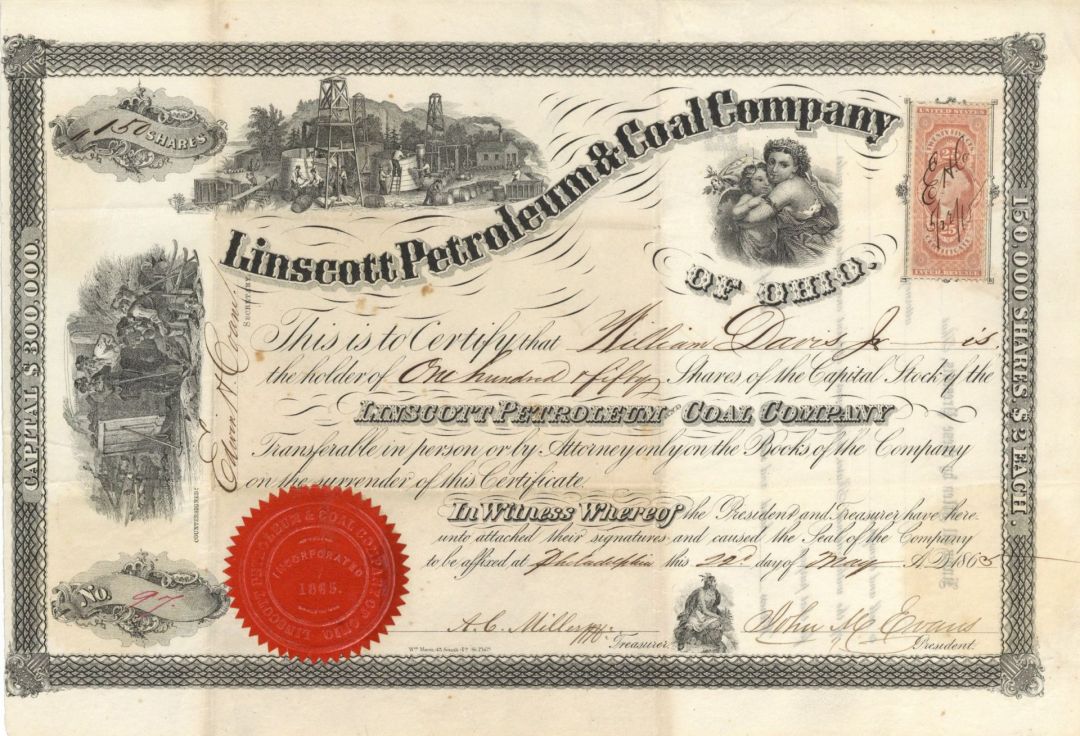 150 SHARES
Linscott Petroleum & Coal Company
OF OHIO.
UNITED STATES
25
CERTIFICATE
INTER. REVENUE
CAPITAL $300,000.
150,000 SHARES $2 EACH.
This is to Certify that William Davis Jr is
the holder of One hundred & fifty Shares of the Capital Stock of the
LINSCOTT PETROLEUM AND COAL COMPANY
Transferable in person or by Attorney only on the Books of the Company
on the surrender of this Certificate.
In Witness Whereof the President and Treasurer have here-
unto attached their signatures and caused the Seal of the Company
to be affixed at Philadelphia this 22d day of May A.D. 1865
COUNTERSIGNED:
SECRETARY
LINSCOTT PETROLEUM & COAL COMPANY OF OHIO
INCORPORATED
1865.
No. 97.
A. C. Miller
Treasurer.
John M Evans
President.